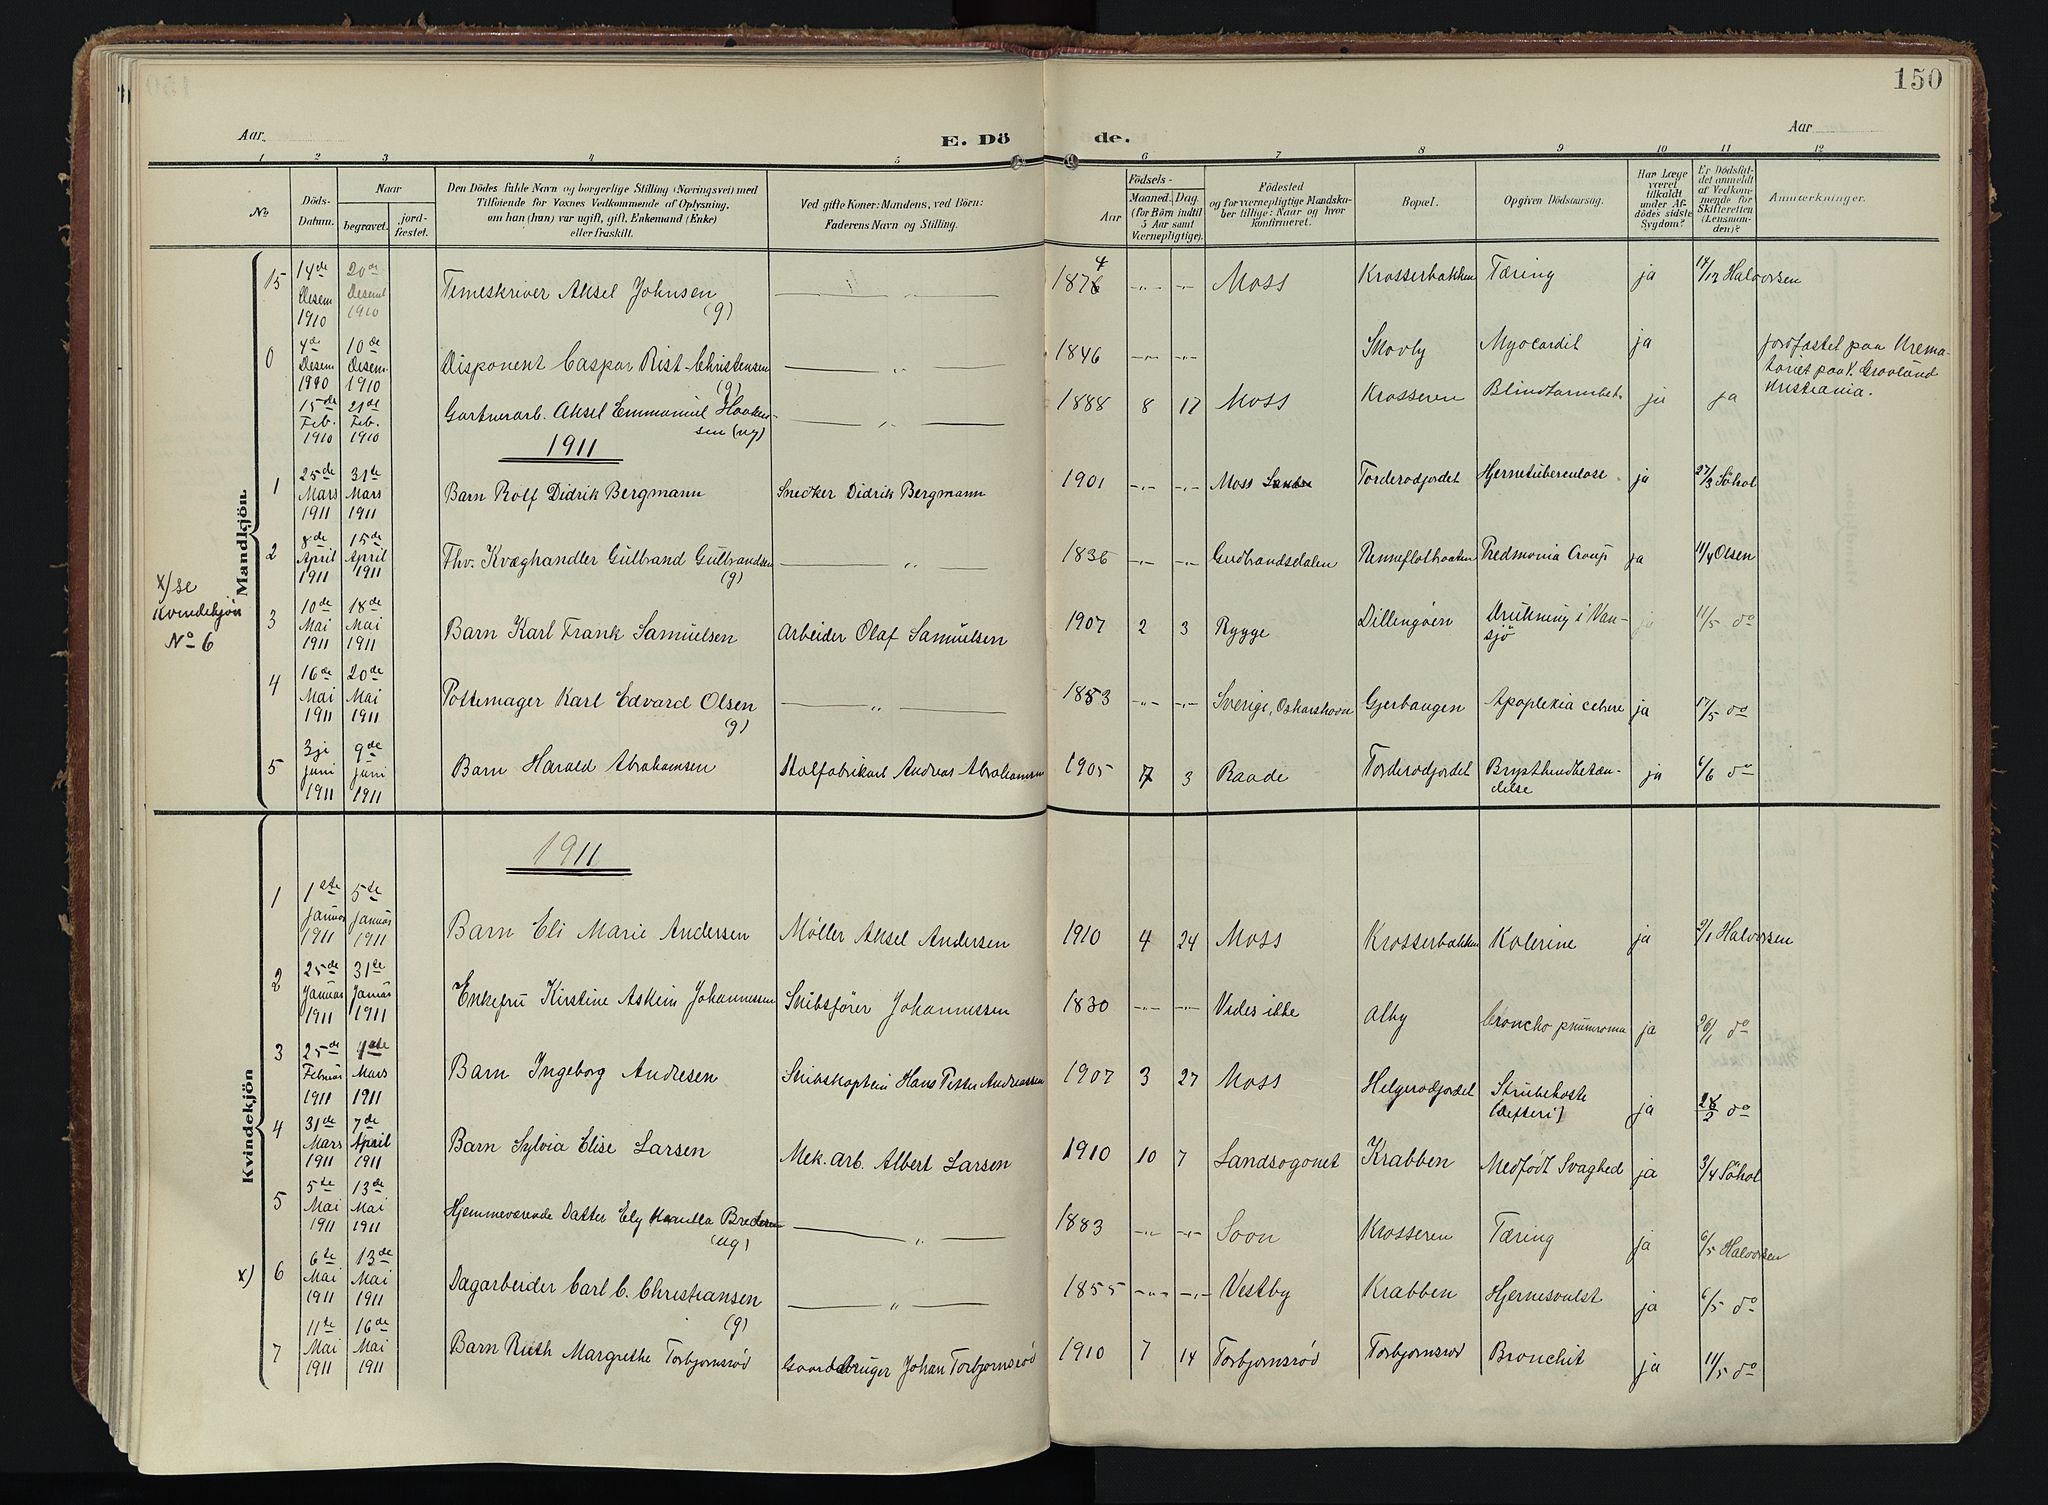 150
Aar
E. Dö de.
Aar
1 2 3 4 5 6 7 8 9 10 11 12
No.
Döds-Datum.
Naar
begravet.
jordfæstet.
Den Dödes fulde Navn og borgerlige Stilling (Næringsvei) med
Tilföiende for Voxnes Vedkommende af Oplysning,
om han (hun) var ugift, gift, Enkemand (Enke)
eller fraskilt.
Ved gifte Koner: Mandens, ved Börn:
Faderens Navn og Stilling.
Födsels-
Aar
Maaned. Dag.
(for Börn indtil
5 Aar samt
Værnepligtige).
Födested
og for værnepligtige Mandskaber tillige: Naar og hvor
konfirmeret.
Bopæl.
Opgiven Dödsaarsag.
Har Læge
været
tilkaldt
under Afdödes sidste
Sygdom?
Er Dödsfaldet anmeldt
af Vedkommende for
Skifteretten
(Lensmanden)?
Anmærkninger.
Mandkjön.
15 14de Desem 1910 20de Desem 1910 Timeskriver Aksel Johnsen (g) — 1874 -"- -"- Moss Krosserbakken Tæring ja 14/12 Halvorsen
0 4de Desem 1910 10de Desem 1910 Disponent Caspar Rist-Christensen (g) — " — 1846 -"- Skovly Myocardit ja jordfæstet paa Krematoriet paa V. Gravlund Kristiania.
15de Feb. 1910 21de Feb. 1910 Gartnerarb. Aksel Emmanuel Haakensen (ug) — " — 1888 8 17 Moss Krosseren Blindtarmbet. ja ja
1911
1 25de Mars 1911 31te Mars 1911 Barn Rolf Didrik Bergmann Snedker Didrik Bergmann 1901 -"- -"- Moss Torderødjordet Hjernetuberculose ja 27/3 Söhol
2 8de April 1911 15de April 1911 Fhv. Kvæghandler Gulbrand Gulbrandsen (g) — " — 1836 -"- -"- Gudbrandsdalen Croup ja 11/4 Olsen
x) se
Kvindekjön
No 6
3 10de Mai 1911 18de Mai 1911 Barn Karl Frank Samuelsen Arbeider Olaf Samuelsen 1907 2 3 Rygge Dillingøen Drukning i Vansjö ja 11/5 do
4 16de Mai 1911 20de Mai 1911 Pottemager Karl Edvard Olsen (g) — " — 1853 -"- -"- Sverige, Oskarshavn Gjerhaugen Apoplexia cebere ja 17/5 do
5 3je juni 1911 9de juni 1911 Barn Harald Abrahamsen Stolfabrikarb Andreas Abrahamsen 1905 7 3 Raade Torderødjordet Brysthindbetændelse ja 6/6 do
Kvindekjön
1911
1 1ste Januar 1911 5te Januar 1911 Barn Eli Marie Andersen Møller Aksel Andersen 1910 4 24 Moss Krosserbakken Kolerine ja 2/1 Halvorsen
2 25de Januar 1911 31te Januar 1911 Enkefru Kirstine Askein Johannessen Skibsfører Johannessen 1830 -"- -"- Vides ikke Alby broncho pnumroma ja 26/1 do
3 25de Februar 1911 4de Mars 1911 Barn Ingeborg Andresen Skibskaptein Hans Petter Andreassen 1907 3 27 Moss Helgerødjordet Strubehoste (defteri) ja 28/2 do
4 31de Mars 1911 7de April 1911 Barn Sylvia Elise Larsen Mek. arb. Albert Larsen 1910 10 7 Landsognet Krabben Medfödt Svaghed ja 3/4 Söhol
5 5te Mai 1911 13de Mai 1911 Hjemmeværende Datter Ely Bredesen (ug) — " — 1883 -"- -"- Soon Krosseren Tæring ja 6/5 Halvorsen
x) 6 6te Mai 1911 13de Mai 1911 Dagarbeider Carl C. Christiansen (g) — " — 1855 -"- -"- Vestby Krabben Hjernesvulst ja 6/5 do
7 11te Mai 1911 16de Mai 1911 Barn Ruth Margrethe Torbjørnsrød Gaardbruger Johan Torbjørnsrød 1910 7 14 Torbjørnsrød Torbjørnsrød Bronchit ja 11/5 do